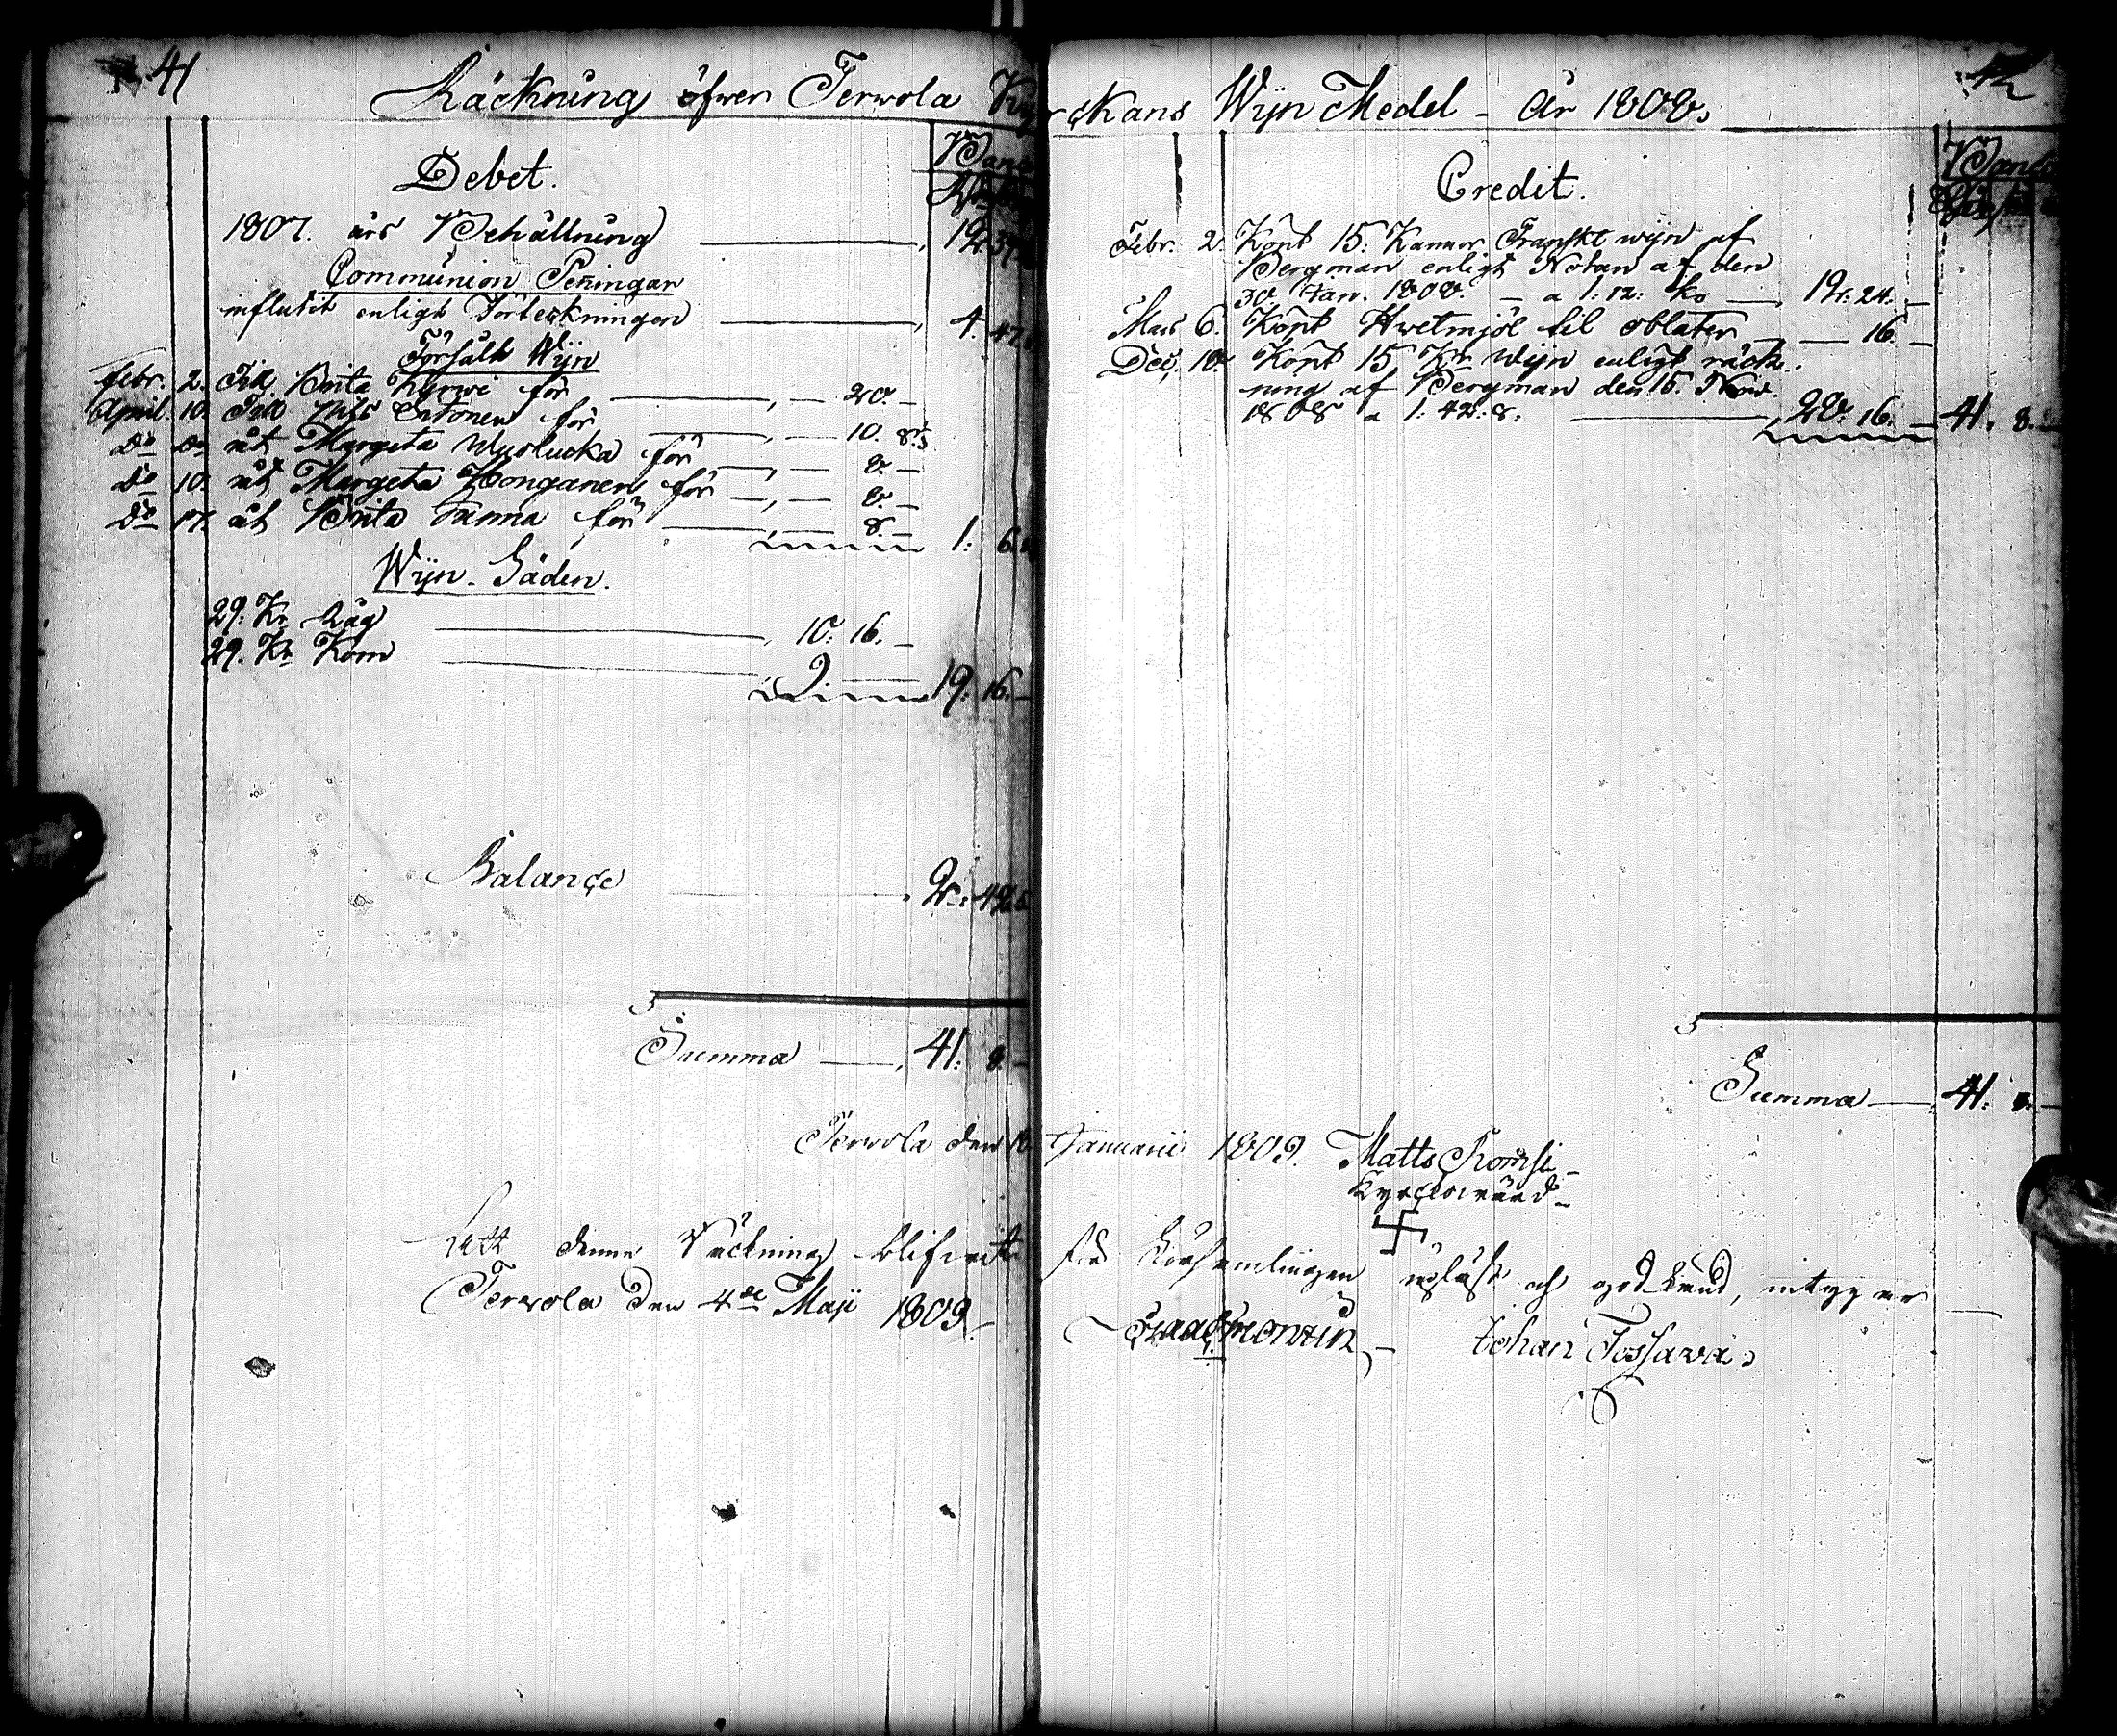 41
Räckning öfwer Terwola Kyrckans Wijn Medel - År 1808.
42
Debet.
Banco
1807. års Behållning 12. 37
Communion Peningar
influtit enligt Förteckningen 4. 47
Försålt Wijn
Febr. 2. Till Brita för 20. -
April 10. Till Nils för 10. 8.
Do Do åt Margeta för 8. -
Do 10. åt Margeta Honganen för 8. -
Do 17. åt Brita för 8. - 1: 6.
Wijn-Säden.
29. Kr Råg 10: 16. -
29. Kr Korn 9. - 19: 16. -
Balançe 2: 42
Summa 41: 8. -
Credit.
Banco
Febr. 2. Köpt 15. Kannor Franskt wijn af
Bergman enligt Notan af den
30. Jan. 1808. - a 1: 12: ko 12: 24. -
Mars 6. Köpt Hwetmjöl til oblater 16. -
Dec. 18. Köpt 15 Kr Wijn enligt räck-
ning af Bergman den 15. Nov.
1808 a 1: 42: 8. 28: 16. - 41. 8. -
Summa 41: 8. -
Terwola den Januarii 1809. Matts
Kyrckowärd
Att denna Räckning blifwit för Församlingen upläst och godkänd, intygar
Terwola den 4de Maji 1809.
Johan Tossava